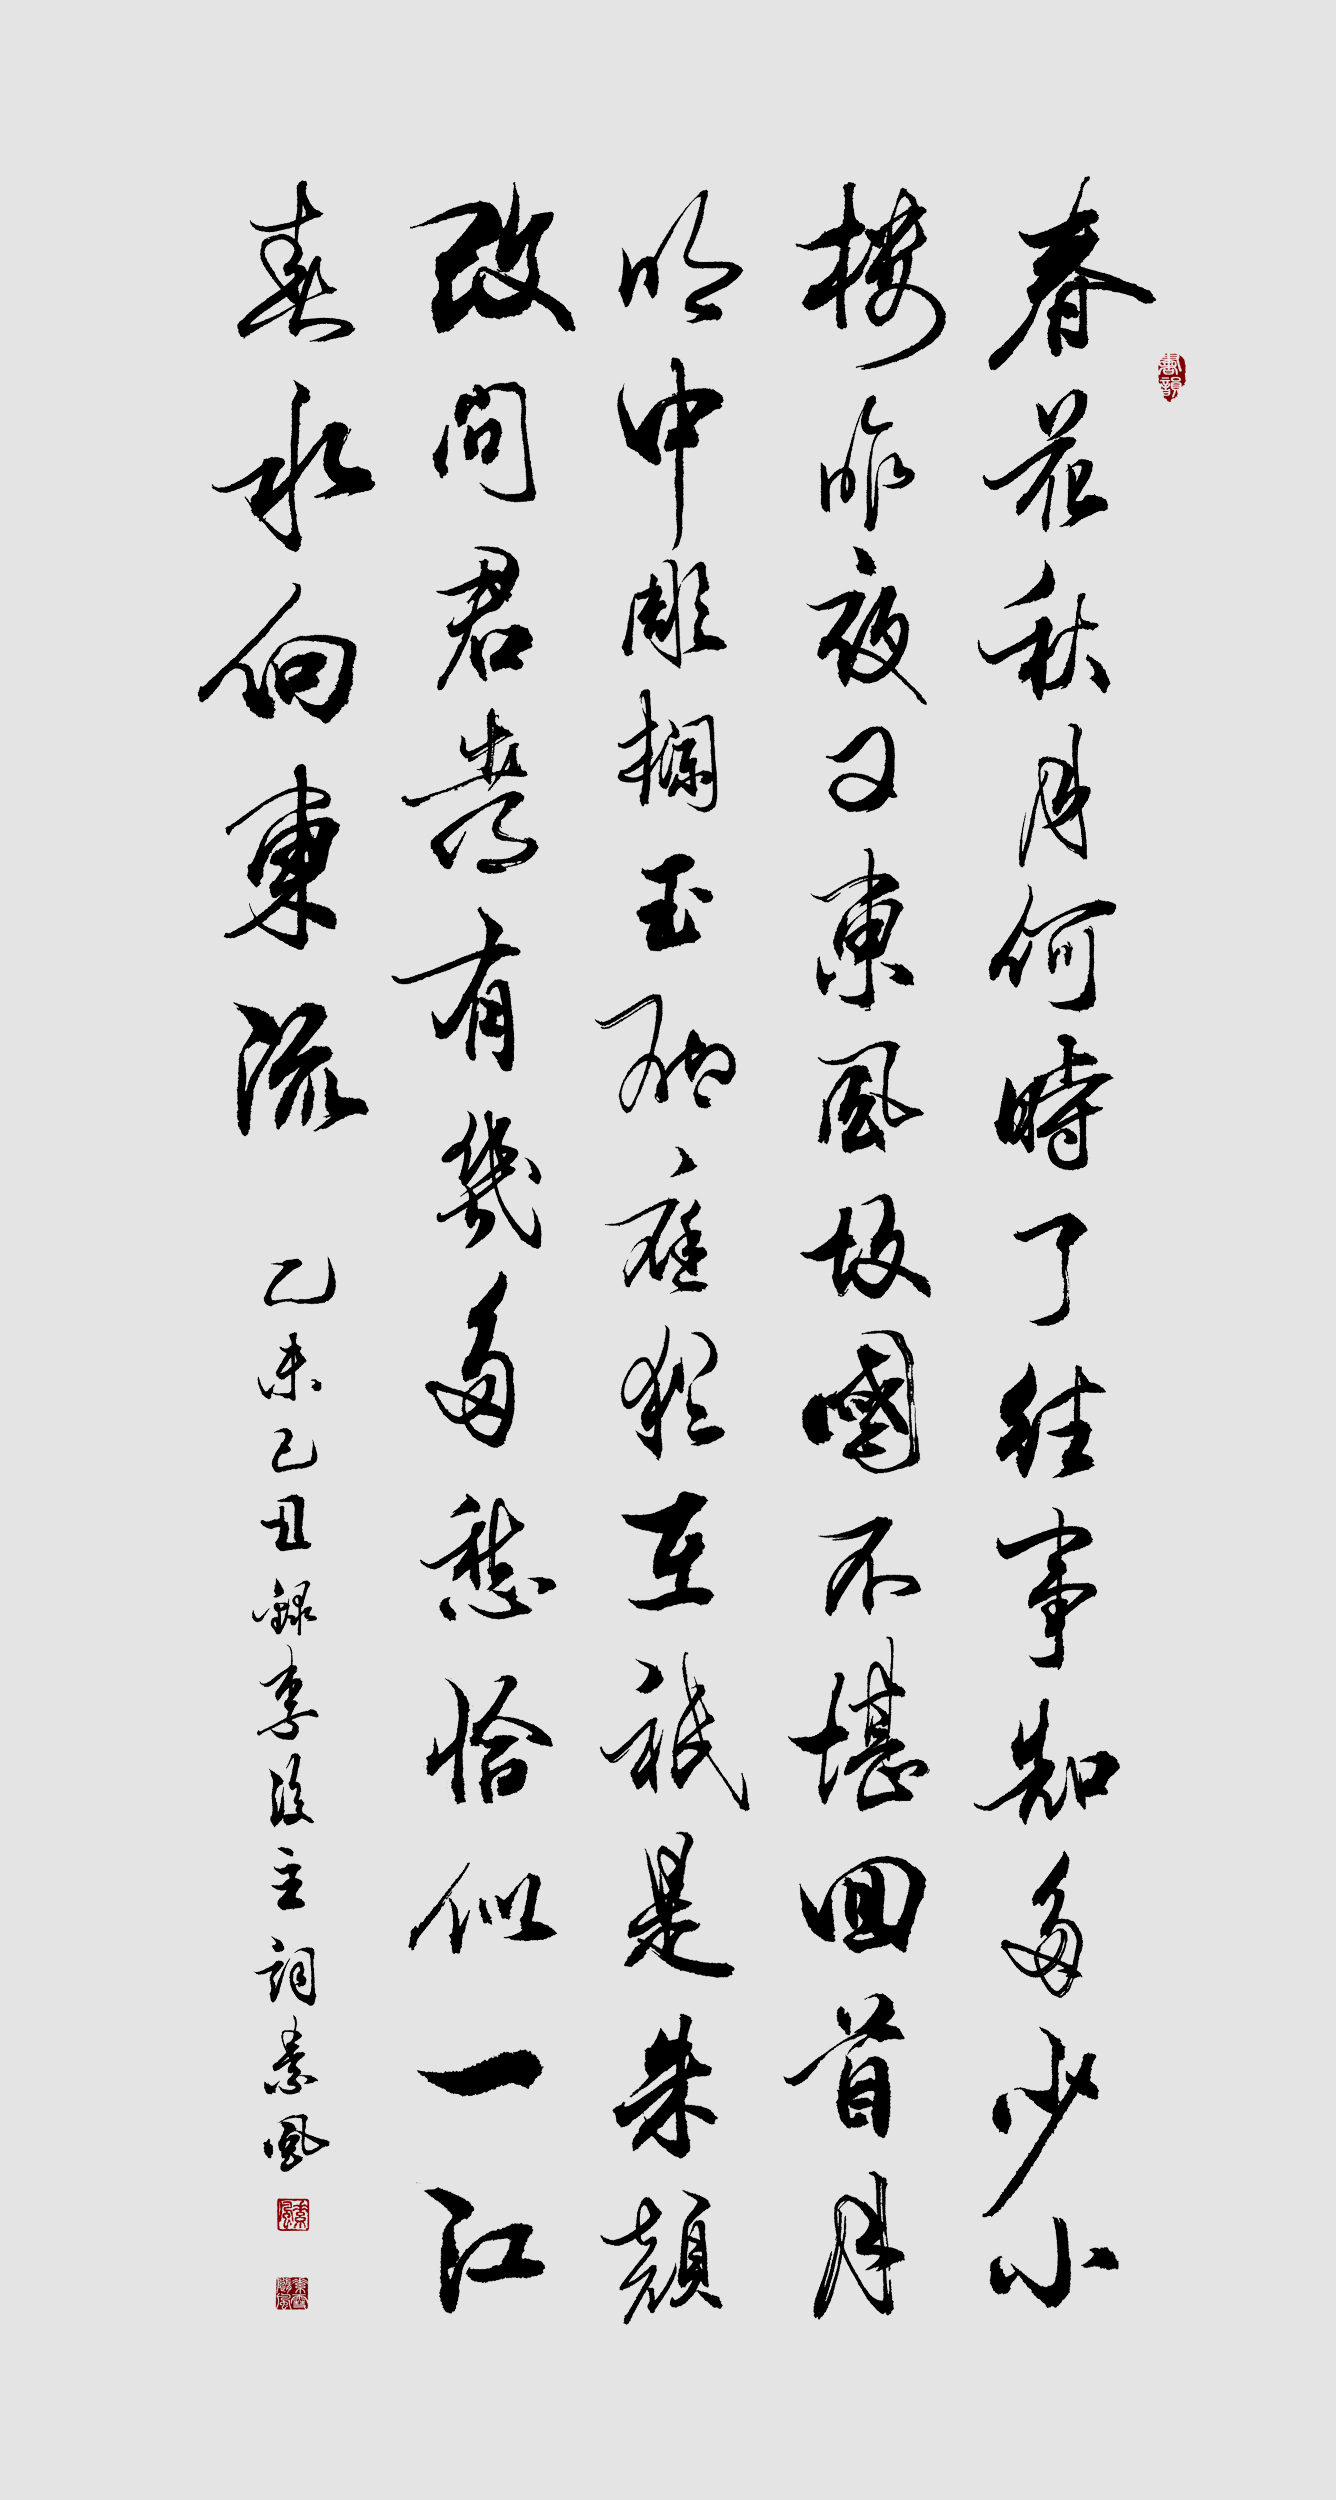 春花秋月何時了往事知多少小
樓昨夜又東風故國不堪回首月
明中雕欄玉砌應猶在衹是朱顏
改問君有幾多愁恰似一江
春水向東流
乙未己丑錄李後主詞素風
素風